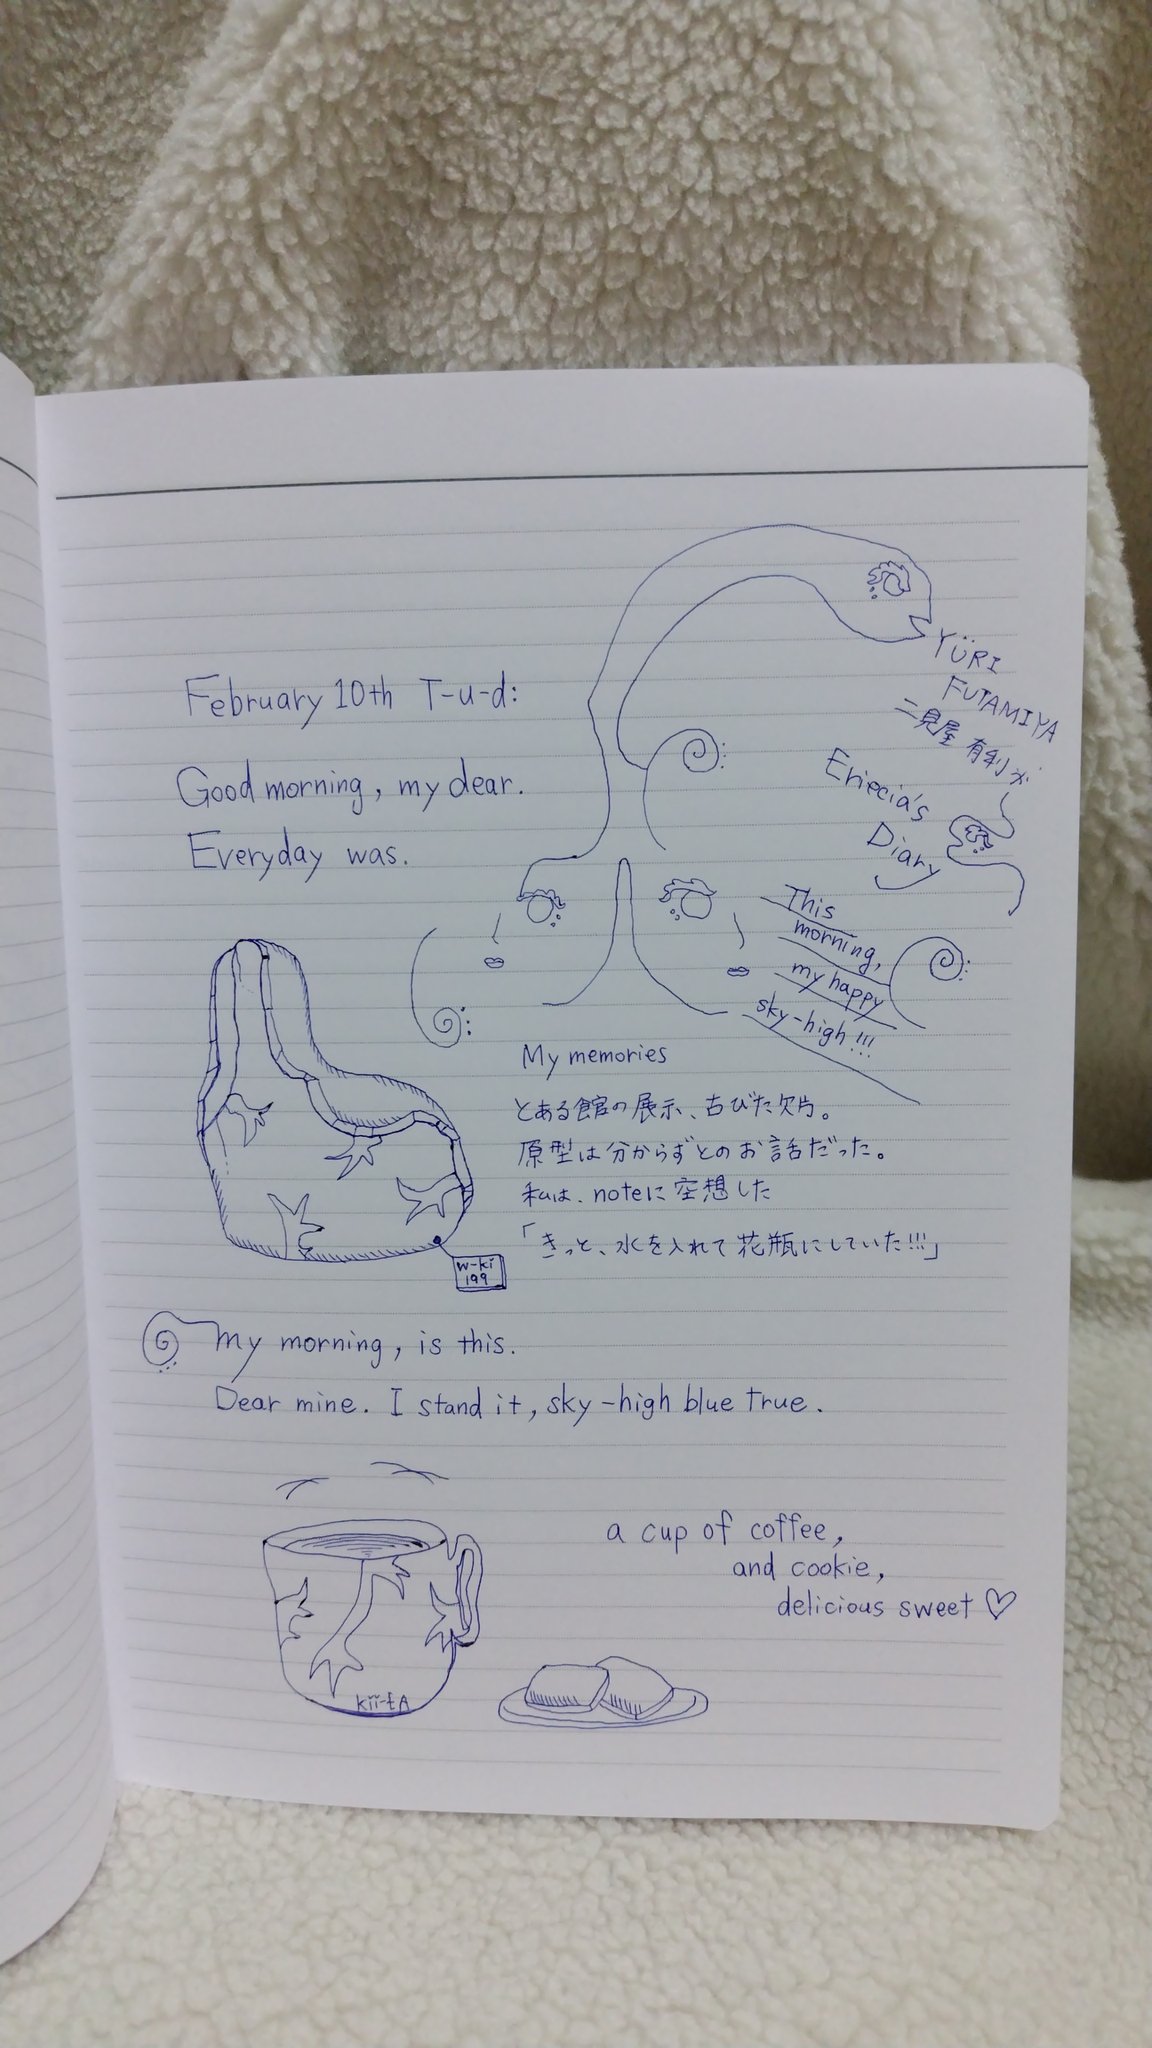 February 10th T-u-d:
Good morning, my dear.
Everyday was.
YÜRI
FUTAMIYA
二見屋 有利
Eriecia's
Diary
This
morning,
my happy
sky-high!!!
My memories
とある館の展示、古びた欠片。
原型は分からずとのお話だった。
私は、noteに空想した
「きっと、水を入れて花瓶にしていた!!!」
w-ki
199
My morning, is this.
Dear mine. I stand it, sky-high blue true.
a cup of coffee,
and cookie,
delicious sweet♡